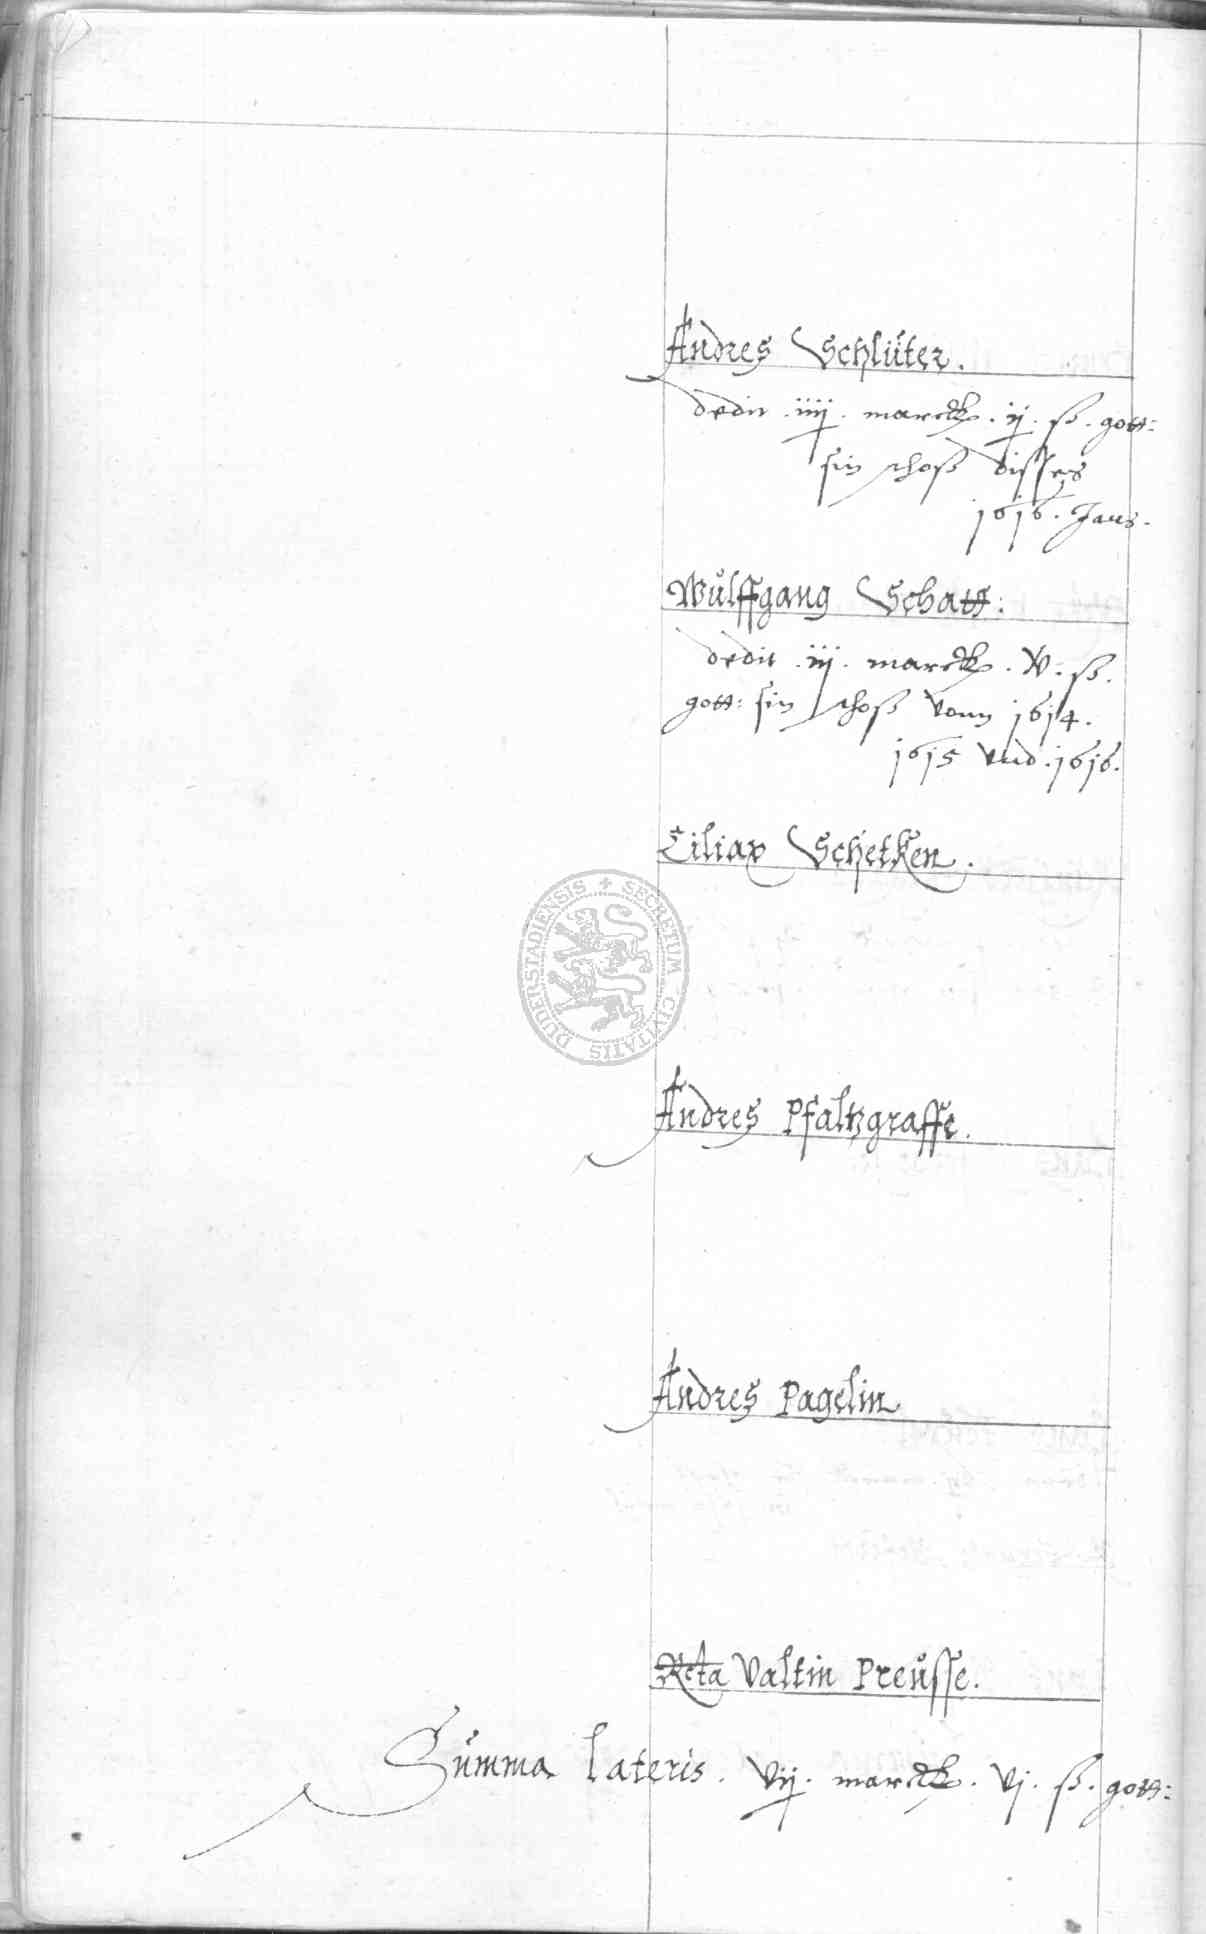 Andres Schlüter.
dedit . iiij . marck . ij . ß . gott:
sin schoß disses
1616 . Jars .
Wulffgang Schatt:
dedit . iij . marck . v . ß .
gott: sin schoß vonn 1614 .
1615 vnd . 1616 .
Ciliax Schetken .
DUDERSTADIENSIS + SECRETUM CIVITATIS
Andres Pfaltzgraffe .
Andres Pagelin
Rcta Valtin Preusse .
Summa lateris . vij . marck . vj . ß . gott: